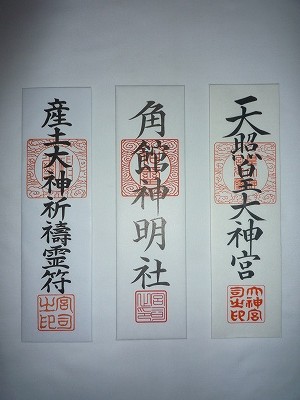 天照皇大神宮
大神宮司之印
角館神明社
産土大神祈禱霊符
宮司之印